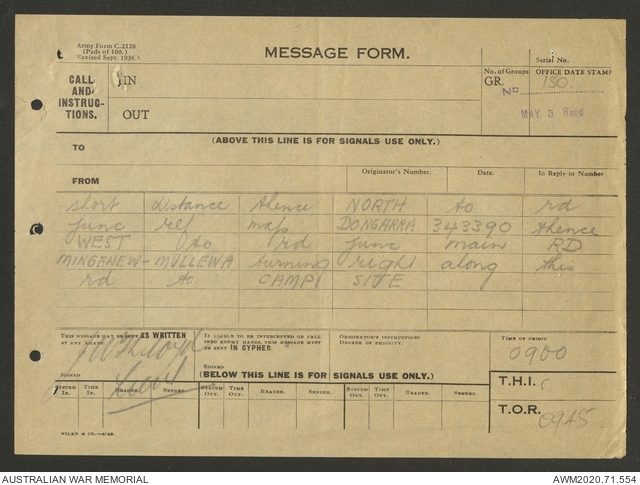 Army Form C.2128
(Pads of 100.)
Revised Sept. 1936.
MESSAGE FORM.
Serial No.
CALL
AND
INSTRUC-
TIONS.
IN
OUT
No. of Groups
GR.
OFFICE DATE STAMP
No. 150
MAY 5 Recd
(ABOVE THIS LINE IS FOR SIGNALS USE ONLY.)
TO
FROM
Originator's Number.
Date.
In Reply to Number
short distance thence NORTH to rd
junc ref map DONGARRA 343390 thence
WEST to rd junc main RD
MINGENEW-MULLEWA turning right along this
rd to CAMP SITE
THIS MESSAGE MAY BE SENT AS WRITTEN
BY ANY MEANS.
SIGNED
IF LIABLE TO BE INTERCEPTED OR FALL
INTO ENEMY HANDS, THIS MESSAGE MUST
BE SENT IN CYPHER.
SIGNED
ORIGINATOR'S INSTRUCTIONS
DEGREE OF PRIORITY.
TIME OF ORIGIN
0900
(BELOW THIS LINE IS FOR SIGNALS USE ONLY.)
T.H.I.
SYSTEM IN. TIME IN. READER. SENDER. SYSTEM OUT. TIME OUT. READER. SENDER. SYSTEM OUT. TIME OUT. READER. SENDER.
T.O.R. 0945
AUSTRALIAN WAR MEMORIAL
AWM2020.71.554